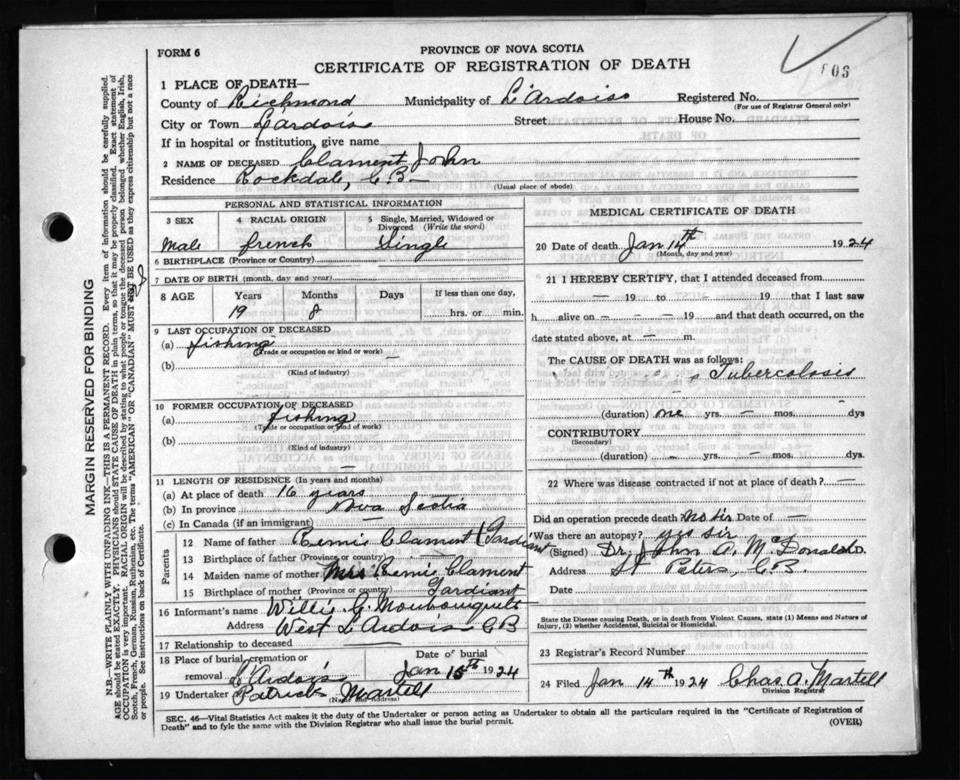 FORM 6
PROVINCE OF NOVA SCOTIA
CERTIFICATE OF REGISTRATION OF DEATH
1 PLACE OF DEATH—
County of Richmond Municipality of L'Ardoise Registered No.
(For use of Registrar General only)
City or Town L'Ardoise Street House No.
If in hospital or institution, give name
2 NAME OF DECEASED Clament John
Residence Rockdale, C.B.
(Usual place of abode)
PERSONAL AND STATISTICAL INFORMATION
3 SEX 4 RACIAL ORIGIN 5 Single, Married, Widowed or Divorced (Write the word)
Male french Single
6 BIRTHPLACE (Province or Country)
7 DATE OF BIRTH (month, day and year)
8 AGE Years Months Days If less than one day,
19 8 hrs. or min.
9 LAST OCCUPATION OF DECEASED
(a) fishing
(Trade or occupation or kind or work)
(b) —
(Kind of industry)
10 FORMER OCCUPATION OF DECEASED
(a) fishing
(Trade or occupation or kind of work)
(b)
(Kind of industry)
—
11 LENGTH OF RESIDENCE (In years and months)
(a) At place of death 16 years
(b) In province Nova Scotia
(c) In Canada (if an immigrant) —
Parents
12 Name of father Remis Clament (Gardiant
13 Birthplace of father (Province or country)
14 Maiden name of mother Mrs Remis Clament
15 Birthplace of mother (Province or country) Gardiant
16 Informant's name Willis G.
Address West L'Ardois CB
17 Relationship to deceased —
18 Place of burial, cremation or removal L'Ardois Date of burial Jan 15th 1924
19 Undertaker Patrick Martell
(Name and Address)
MEDICAL CERTIFICATE OF DEATH
20 Date of death Jan 14th 1924
(Month, day and year)
21 I HEREBY CERTIFY, that I attended deceased from
— 19 to — 19 that I last saw
h alive on — — — 19 and that death occurred, on
date stated above, at — m.
The CAUSE OF DEATH was as follows:
Tubercolosis
(duration) one yrs. — mos. dys
CONTRIBUTORY
(Secondary)
(duration) — yrs. — mos. — dys.
22 Where was disease contracted if not at place of death? —
Did an operation precede death? no sir Date of —
Was there an autopsy? yes sir
(Signed) Dr. John A. McDonald M.D.
Address St Peters, C.B.
Date
State the Disease causing Death, or in death from Violent Causes, state (1) Means and Nature of
Injury, (2) whether Accidental, Suicidal or Homicidal.
23 Registrar's Record Number
24 Filed Jan 14th 1924 Chas. A. Martell
Division Registrar
SEC. 46—Vital Statistics Act makes it the duty of the Undertaker or person acting as Undertaker to obtain all the particulars required in the "Certificate of Registration of
Death" and to fyle the same with the Division Registrar who shall issue the burial permit.
(OVER)
MARGIN RESERVED FOR BINDING
N.B.—WRITE PLAINLY WITH UNFADING INK—THIS IS A PERMANENT RECORD. Every item of information should be carefully supplied.
AGE should be stated EXACTLY. PHYSICIANS should STATE CAUSE OF DEATH in plain terms, so that it may be properly classified. Exact statement of
OCCUPATION is very important. RACIAL ORIGIN will be described by stating to what people or tongue the deceased person belonged whether English, Irish,
Scotch, French, German, Russian, Ruthenian, etc. The terms "AMERICAN" OR "CANADIAN" MUST NOT BE USED as they express citizenship but not a race
or people. See instructions on back of Certificate.